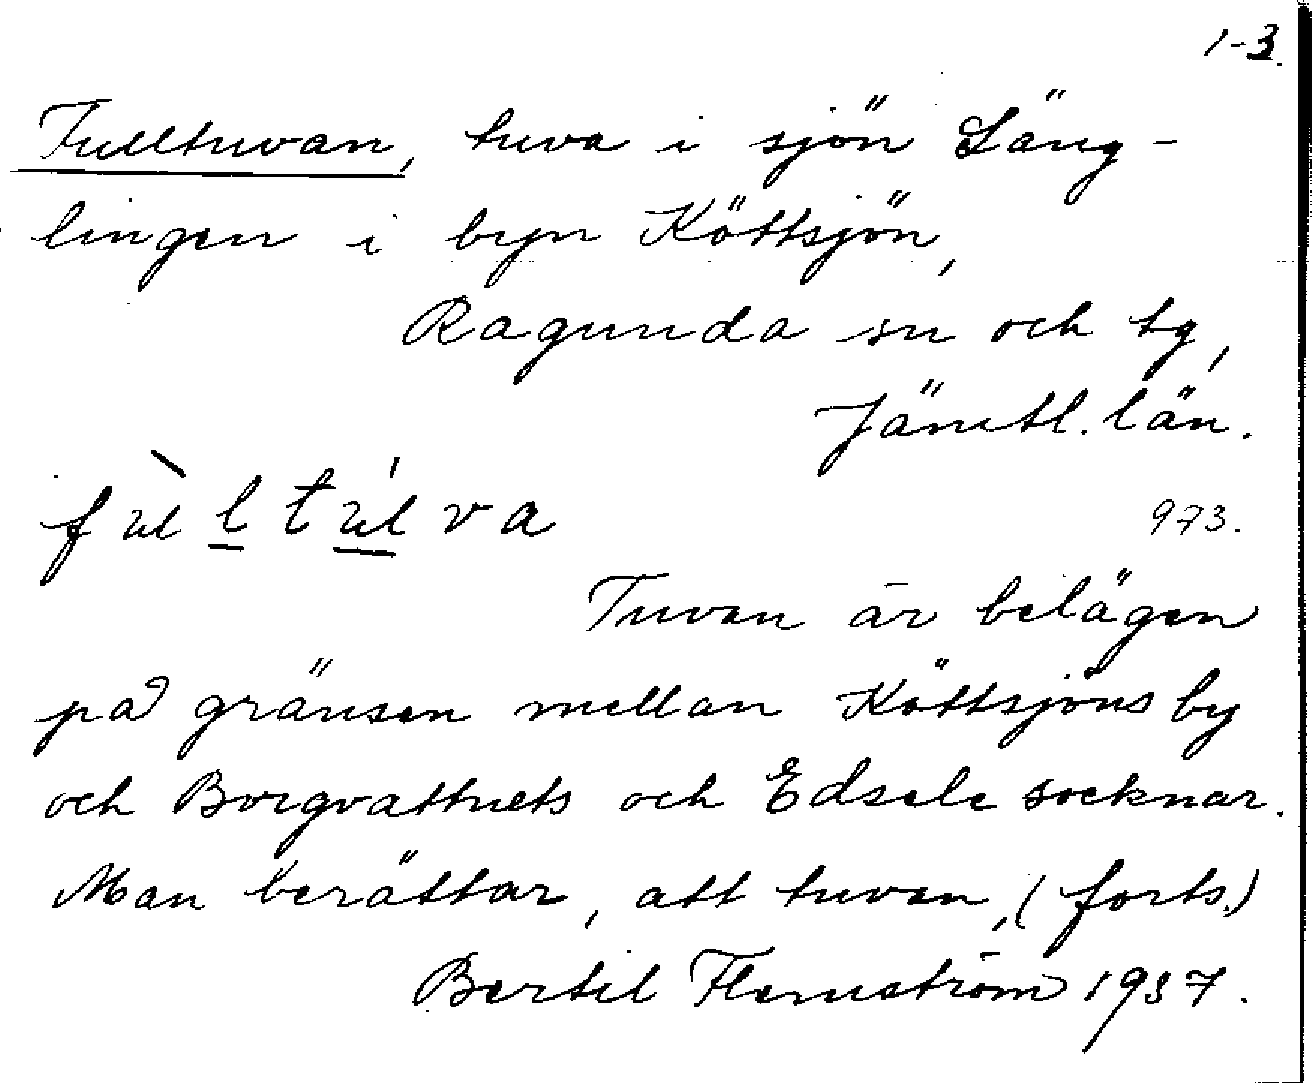 1-3.
Fulltuvan, tuva i sjön Läng-
lingen i byn Köttsjön,
Ragunda sn och tg,
Jämtl. län.
973.
Tuvan är belägen
på gränsen mellan Köttsjöns by
och Borgvattnets och Edsele socknar.
Man berättar, att tuvan, (forts.)
Bertil Flemström 1937.